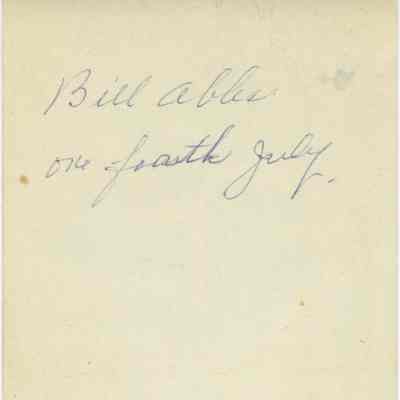 Bill Abbs
one fourth July.